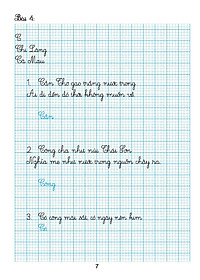 Bài 4:
C
Chi Lăng
Cà Mau
1. Cần Thơ gạo trắng nước trong
Ai đi đến đó thời không muốn về.
Cần
2. Công cha như núi Thái Sơn
Nghĩa mẹ như nước trong nguồn chảy ra.
Công
3. Có công mài sắt có ngày nên kim.
Có
7